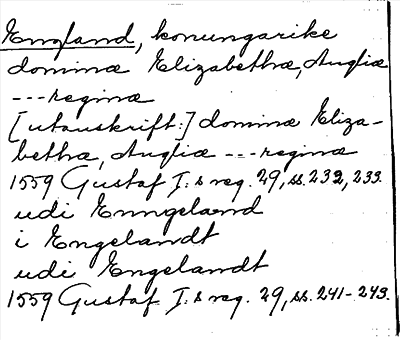 England, konungarike
dominæ Elizabethæ, Angliæ
---reginæ
[utanskrift:] dominæ Eliza-
bethæ, Angliæ ---reginæ
1559 Gustaf I:s reg. 29, ss. 232, 233.
udi Enngelænd
i Engelandt
udi Engelandt
1559 Gustaf I:s reg. 29, ss. 241-243.